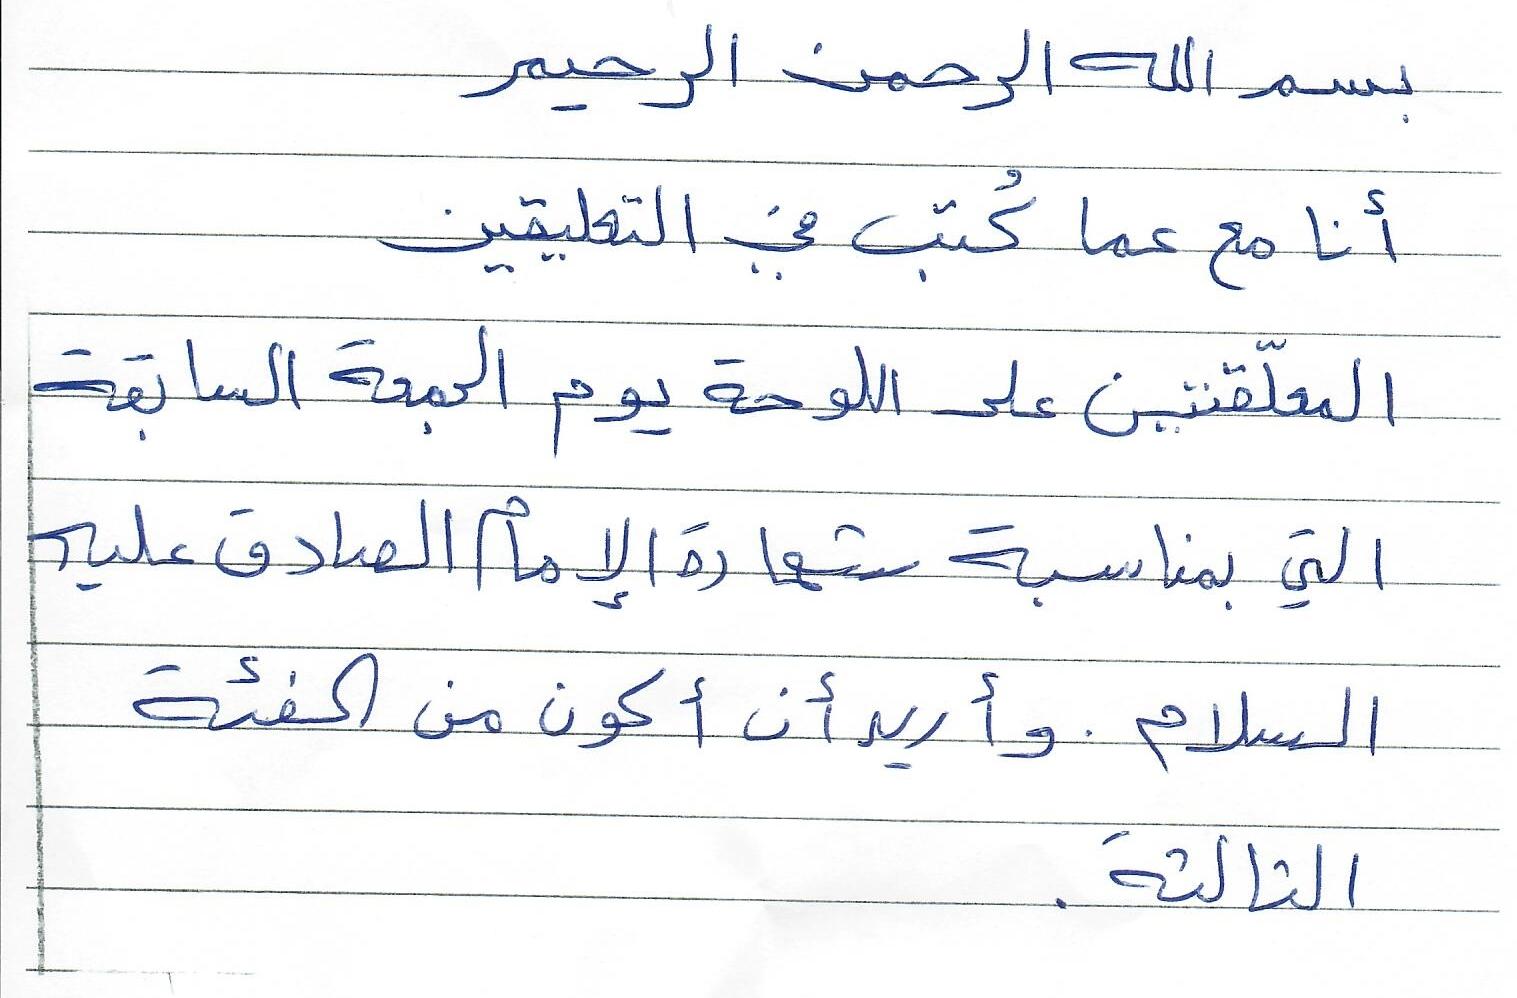 بسم الله الرحمن الرحيم
أنا مع عما كُتب في التعليقين
المعلّقتين على اللوحة يوم الجمعة السابقة
التي بمناسبة شهادة الإمام الصادق عليه
السلام . وأريد أن أكون من الفئة
الثالثة .